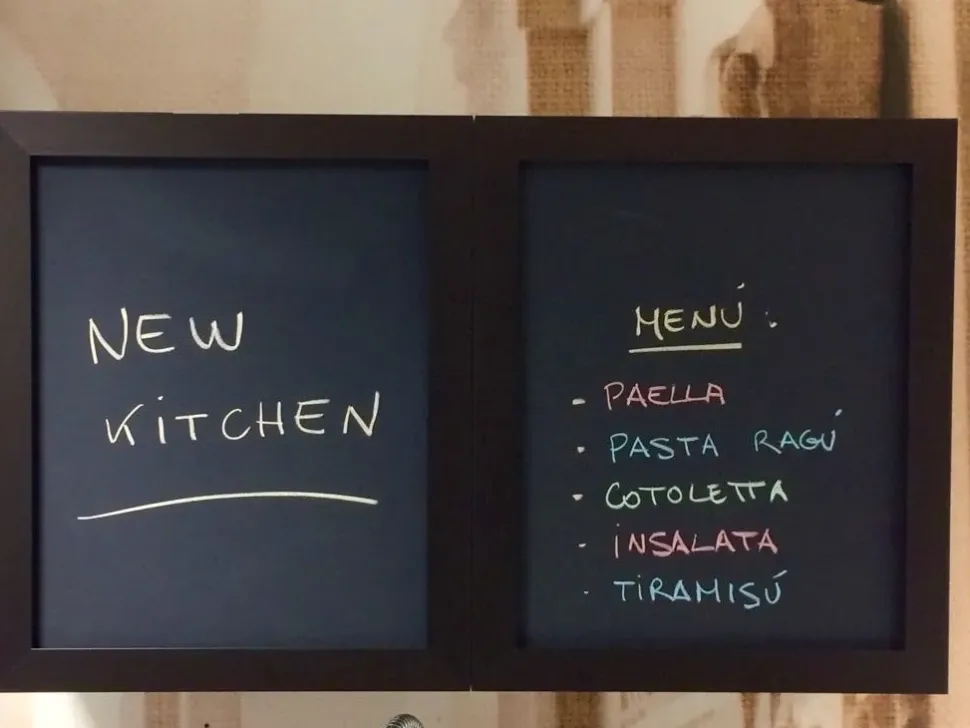 NEW
KiTCHEN
MENÚ:
- PAELLA
- PASTA RAGÚ
- COTOLETTA
- iNSALATA
- TiRAMISÚ